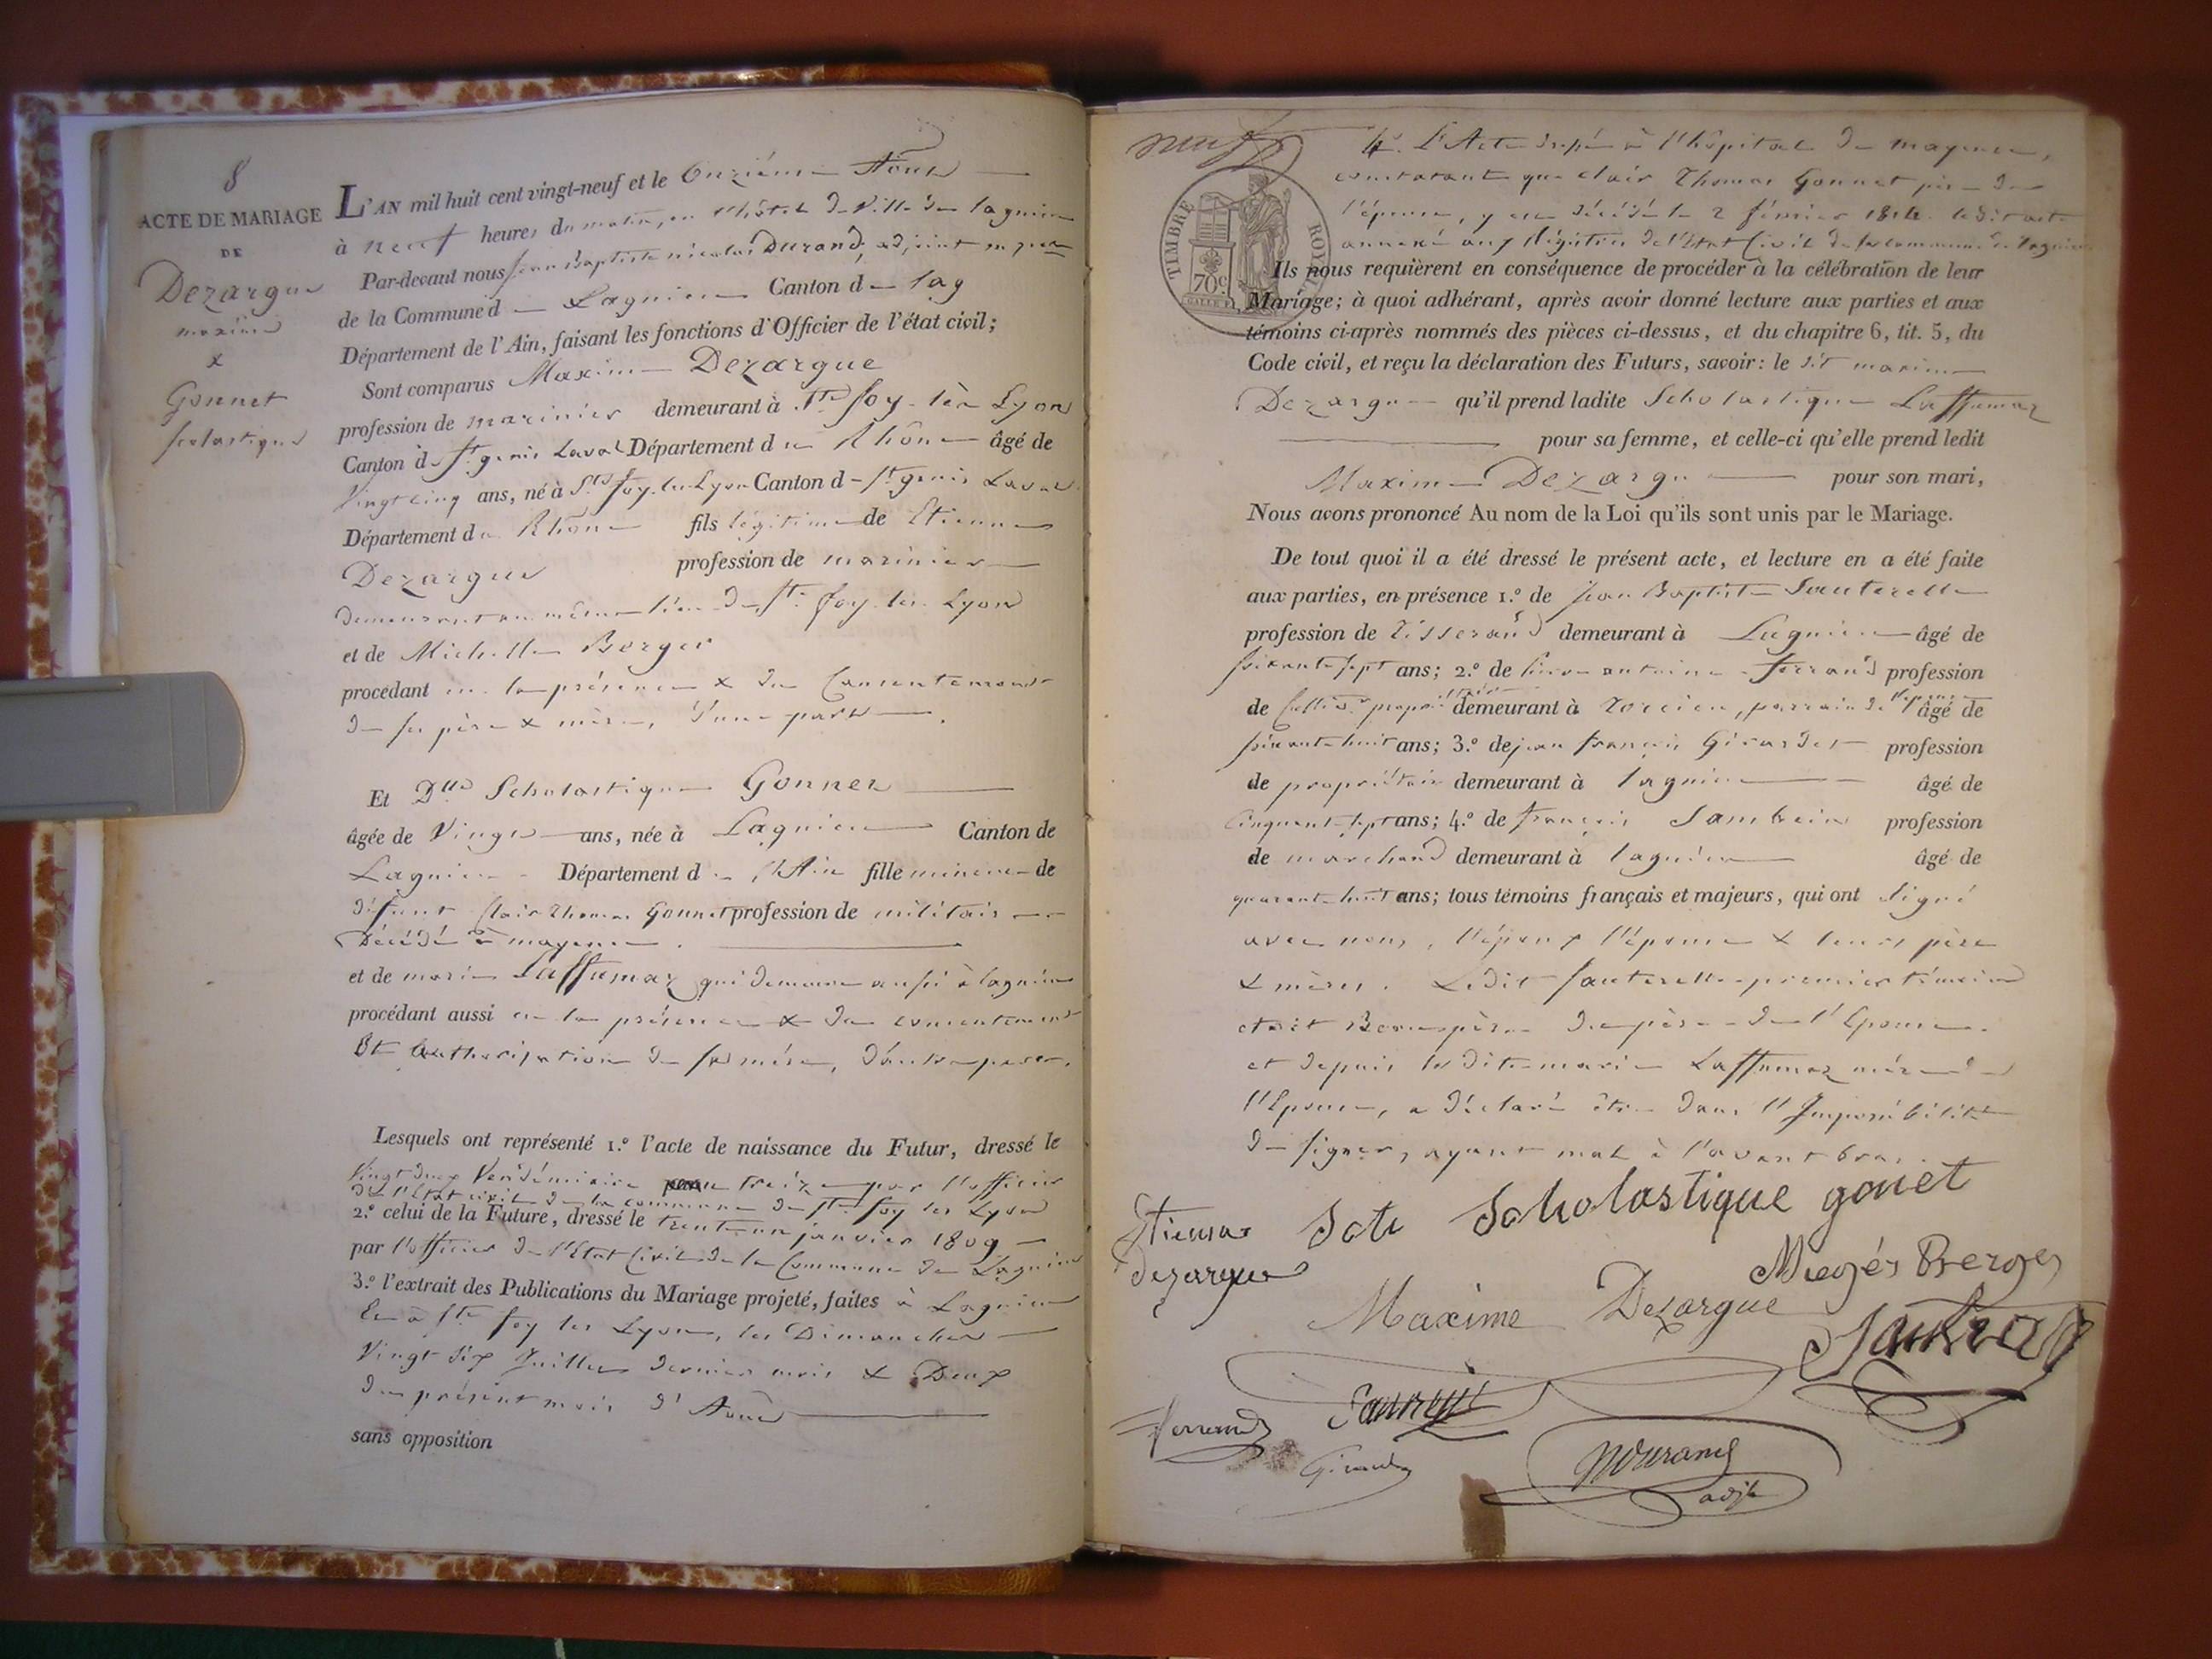 8
ACTE DE MARIAGE
DE
Dezargue
maxime
&
Gonnet
scolastique
L'AN mil huit cent vingt-neuf et le Onzième Août
à neuf heures du matin, en l'hôtel de Ville de lagnieu
Par-devant nous Jean Baptiste nicolas Durand, adjoint
de la Commune d Lagnieu Canton d lag
Département de l'Ain, faisant les fonctions d'Officier de l'état civil;
Sont comparus Maxime Dezargue
profession de marinier demeurant à Ste foy lès Lyon
Canton de St genis Laval Département du Rhône âgé de
Vingt cinq ans, né à Ste foy les Lyon Canton d St genis Laval
Département du Rhône fils légitime de Etienne
Dezargue profession de marinier
demeurant au même lieu de Ste foy les Lyon
et de Michelle Berger
procédant en la présence & du Consentement
de ses père & mère, d'une part.
Et Dlle Scholastique Gonnet
âgée de Vingt ans, née à Lagnieu Canton de
Lagnieu Département de l'Ain fille mineure de
défunt Clair Thomas Gonnet profession de militaire
Décédé à mayence.
et de marie Laffumaz qui demeure aussi à lagnieu
procédant aussi en la présence & du consentement
Et Authorisation de sa mère, d'autre part.
Lesquels ont représenté 1.º l'acte de naissance du Futur, dressé le
Vingt deux Vendémiaire treize par l'officier
de l'Etat civil de la commune de Ste foy les Lyon
2.º celui de la Future, dressé le trente un janvier 1809
par l'officier de l'Etat Civil de la Commune de Lagnieu
3.º l'extrait des Publications du Mariage projeté, faites à Lagnieu
Et à Ste foy les Lyon, les Dimanches
Vingt six Juillet dernier mois & Deux
du présent mois d'Août
sans opposition
neuf
TIMBRE ROYAL
70c.
4º. L'Acte dressé à l'hôpital de mayence,
constatant que clair Thomas Gonnet père de
l'épouse, y est décédé le 2 février 1814. ledit acte
annexé aux Régistres de l'Etat Civil de la commune de Lagnieu
Ils nous requièrent en conséquence de procéder à la célébration de leur
Mariage; à quoi adhérant, après avoir donné lecture aux parties et aux
témoins ci-après nommés des pièces ci-dessus, et du chapitre 6, tit. 5, du
Code civil, et reçu la déclaration des Futurs, savoir: le dit maxime
Dezargue qu'il prend ladite Scholastique Laffumaz
pour sa femme, et celle-ci qu'elle prend ledit
Maxime Dezargue pour son mari,
Nous avons prononcé Au nom de la Loi qu'ils sont unis par le Mariage.
De tout quoi il a été dressé le présent acte, et lecture en a été faite
aux parties, en présence 1.º de Jean Baptiste Sauterelle
profession de Tisserand demeurant à Lagnieu âgé de
soixante sept ans; 2.º de antoine ferrand profession
de demeurant à Torcieu, parrain de l'épouse âgé de
soixante huit ans; 3.º de jean françois Girardet profession
de propriétaire demeurant à lagnieu âgé de
Cinquante sept ans; 4.º de françois Sambein profession
de marchand demeurant à lagnieu âgé de
quarante huit ans; tous témoins français et majeurs, qui ont Signé
avec nous, l'époux l'épouse & leurs père
& mères. Ledit Sauterelle premier témoin
était Beaupère du père de l'Epouse.
et depuis ladite marie Laffumaz mère de
l'Epouse, a déclaré être dans l'Impossibilité
de signer, ayant mal à l'avant bras.
Etienne
dezargue
Scholastique gonet
Berger
Maxime Dezargue
ferrand
NDurand
adjt